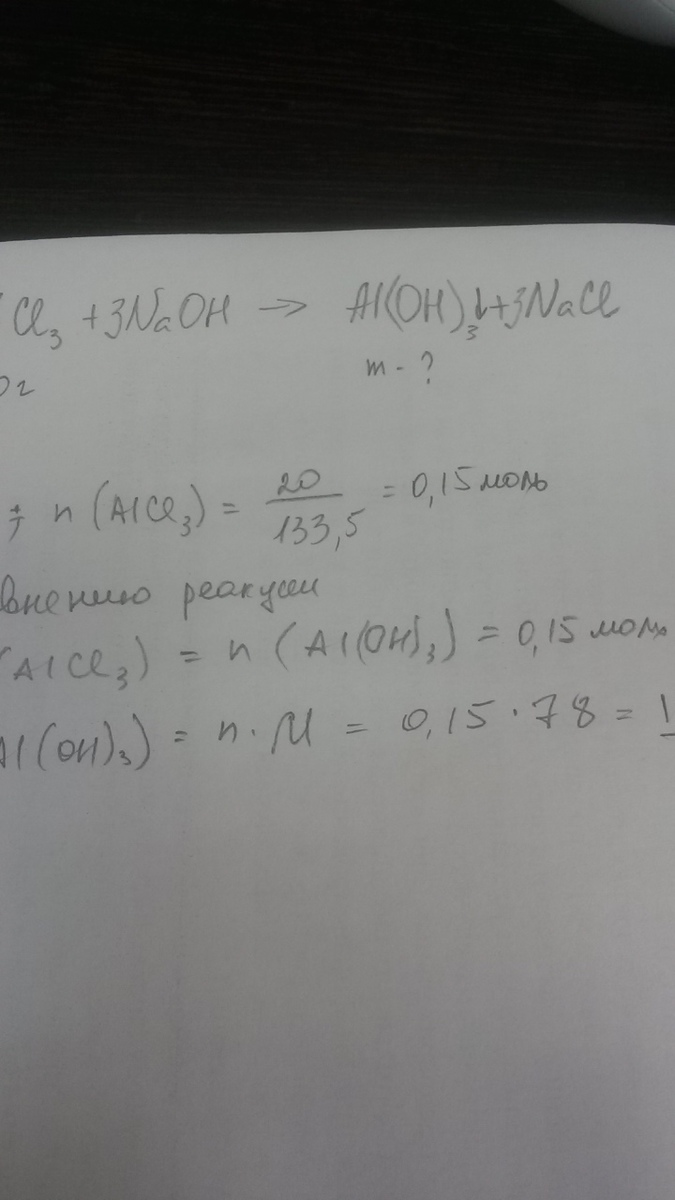 Cl₃ + 3NaOH → Al(OH)₃↓ + 3NaCl
0г m - ?
; n (AlCl₃) = 20/133,5 = 0,15 моль
внению реакции
(AlCl₃) = n (Al(OH)₃) = 0,15 моль
Al(OH)₃) = n · M = 0,15 · 78 = 1